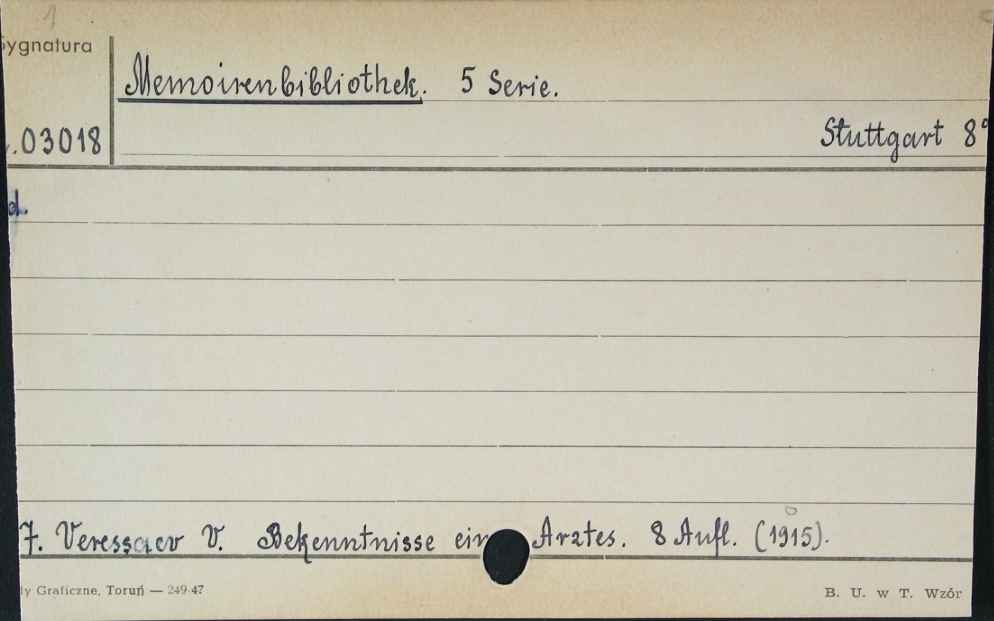 1
Sygnatura
Memoirenbibliothek. 5 Serie.
.03018
Stuttgart 8°
d.
7. Veressaev V. Bekenntnisse ein Arztes. 8 Aufl. (1915).
ly Graficzne, Toruń — 249-47
B. U. w T. Wzór